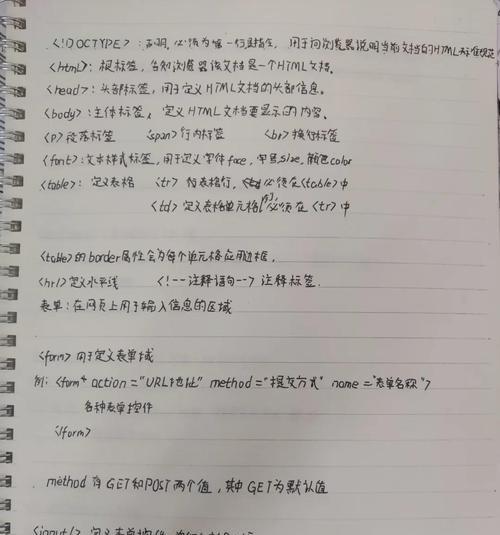 <!DOCTYPE>：声明,必须为唯一行且指定,用于向浏览器说明当前文档的HTML标准规范
<html>：根标签,告知浏览器该文档是一个HTML文档。
<head>：头部标签,用于定义HTML文档的头部信息。
<body>：主体标签,定义HTML文档要显示的内容。
<p>段落标签 <span>行内标签 <br>换行标签
<font>：文本样式标签,用于定义字体face,字号size,颜色color
<table>：定义表格 <tr> 表格行,必须在<table>中
<td>定义表格单元格,必须在<tr>中
<table>的border属性会为每个单元格应用边框,
<hr/>定义水平线 <!--注释语句--> 注释标签.
表单:在网页上用于输入信息的区域
<form>用于定义表单域
例:<form action="URL地址" method="提交方式" name="表单名称">
各种表单控件
</form>
method 有GET和POST两个值,其中GET为默认值
<input/>定义表单控件